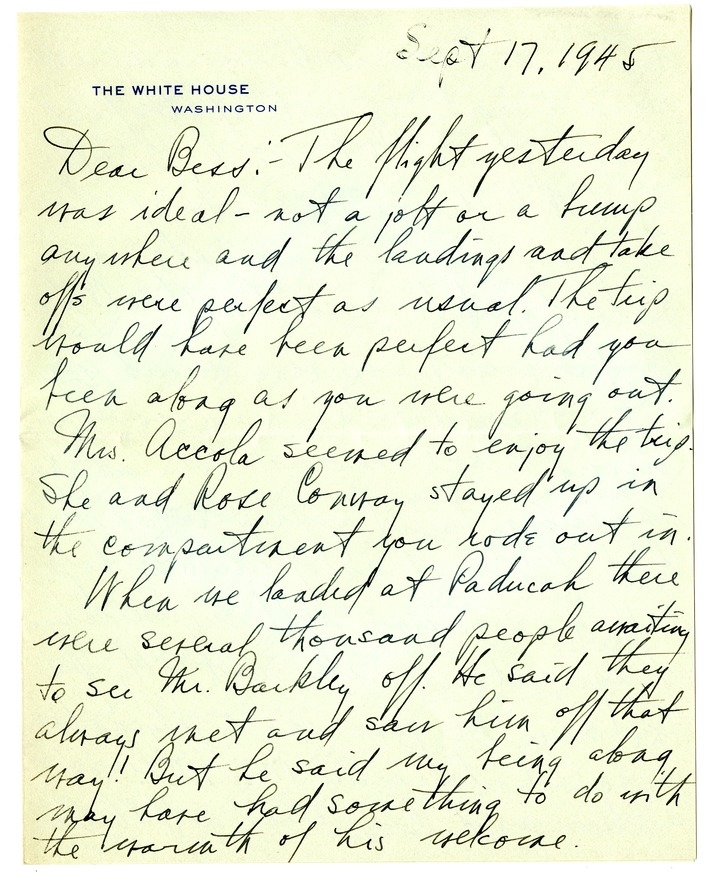 Sept 17, 1945
THE WHITE HOUSE
WASHINGTON
Dear Bess:- The flight yesterday
was ideal - not a jolt or a bump
anywhere and the landings and take
offs were perfect as usual. The trip
would have been perfect had you
been along as you were going out.
Mrs. Accola seemed to enjoy the trip.
She and Rose Conway stayed up in
the compartment you rode out in.
When we landed at Paducah there
were several thousand people awaiting
to see Mr. Barkley off. He said they
always met and saw him off that
way! But he said my being along
may have had something to do with
the warmth of his welcome.